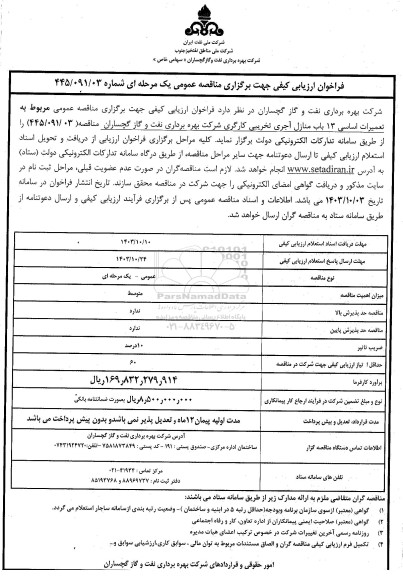 شرکت ملی نفت ایران
شرکت ملی مناطق نفتخیز جنوب
شرکت بهره برداری نفت و گاز گچساران - (سهامی خاص)
فراخوان ارزیابی کیفی جهت برگزاری مناقصه عمومی یک مرحله ای شماره ۴۴۵/۰۹۱/۰۳
شرکت بهره برداری نفت و گاز گچساران در نظر دارد فراخوان ارزیابی کیفی جهت برگزاری مناقصه عمومی مربوط به
تعمیرات اساسی ۱۳ باب منازل آجری تخریبی کارگری شرکت بهره برداری نفت و گاز گچساران مناقصه (۴۴۵/۰۹۱/۰۳) را
از طریق سامانه تدارکات الکترونیکی دولت برگزار نماید. کلیه مراحل برگزاری فراخوان ارزیابی از دریافت و تحویل اسناد
استعلام ارزیابی کیفی تا ارسال دعوتنامه جهت سایر مراحل مناقصه، از طریق درگاه سامانه تدارکات الکترونیکی دولت (ستاد)
به آدرس www.setadiran.ir انجام خواهد شد. لازم است مناقصه‌گران در صورت عدم عضویت قبلی، مراحل ثبت نام در
سایت مذکور و دریافت گواهی امضای الکترونیکی را جهت شرکت در مناقصه محقق سازند. تاریخ انتشار فراخوان در سامانه
تاریخ ۱۴۰۳/۱۰/۰۳ می باشد. اطلاعات و اسناد مناقصه عمومی پس از برگزاری فرآیند ارزیابی کیفی و ارسال دعوتنامه از
طریق سامانه ستاد به مناقصه گران ارسال خواهد شد.
مهلت دریافت اسناد استعلام ارزیابی کیفی ۱۴۰۳/۱۰/۱۰
مهلت ارسال پاسخ استعلام ارزیابی کیفی ۱۴۰۳/۱۰/۲۴
نوع مناقصه عمومی - یک مرحله ای
میزان اهمیت مناقصه متوسط
مناقصه حد پذیرش بالا ندارد
مناقصه حد پذیرش پایین ندارد
ضریب تاثیر ۱۰درصد
حداقل امتیاز ارزیابی کیفی جهت شرکت در مناقصه ۶۰
برآورد کارفرما ۱۶۹،۸۳۲،۲۷۹،۹۱۴ریال
نوع و مبلغ تضمین شرکت در فرآیند ارجاع کار پیمانکاری ۸،۵۰۰،۰۰۰،۰۰۰ریال بصورت ضمانتنامه بانکی
مدت قرارداد، تعدیل و پیش پرداخت مدت اولیه پیمان۱۲ماه و تعدیل پذیر نمی باشدو بدون پیش پرداخت می باشد
اطلاعات تماس دستگاه مناقصه گزار آدرس شرکت بهره برداری نفت و گاز گچساران
ساختمان اداره مرکزی- صندوق پستی: ۱۹۱ - کد پستی: ۷۵۸۱۸۷۳۸۴۹ -تلفن: ۰۷۴۳۱۹۲۴۷۲
تلفن های سامانه ستاد مرکز تماس: ۴۱۹۳۴-۰۲۱
دفتر ثبت نام: ۸۸۹۶۹۷۳۷ و ۸۵۱۹۳۷۶۸
مناقصه گران متقاضی ملزم به ارائه مدارک زیر از طریق سامانه ستاد می باشند:
۱) گواهی (معتبر) ازسوی سازمان برنامه وبودجه(حداقل رتبه ۵ در ابنیه و ساختمان) -وضعیت رتبه بندی ازسامانه ساجار استعلام می گردد.
۲) گواهی (معتبر) صلاحیت ایمنی پیمانکاران از اداره تعاون، کار و رفاه اجتماعی
۳) روزنامه رسمی آخرین تغییرات شرکت در خصوص ترکیب اعضای هیات مدیره
۴) تکمیل فرم ارزیابی کیفی مناقصه گران و الصاق مستندات مربوط به توان مالی، سوابق کاری،ارزشیابی سوابق و...
امور حقوقی و قراردادهای شرکت بهره برداری نفت و گاز گچساران
ParsNamadData
۰۲۱-۸۸۳۴۹۶۷۰-۵